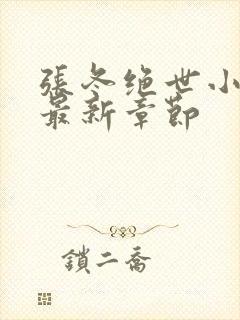 張冬绝世小
最新章節
鎖二喬